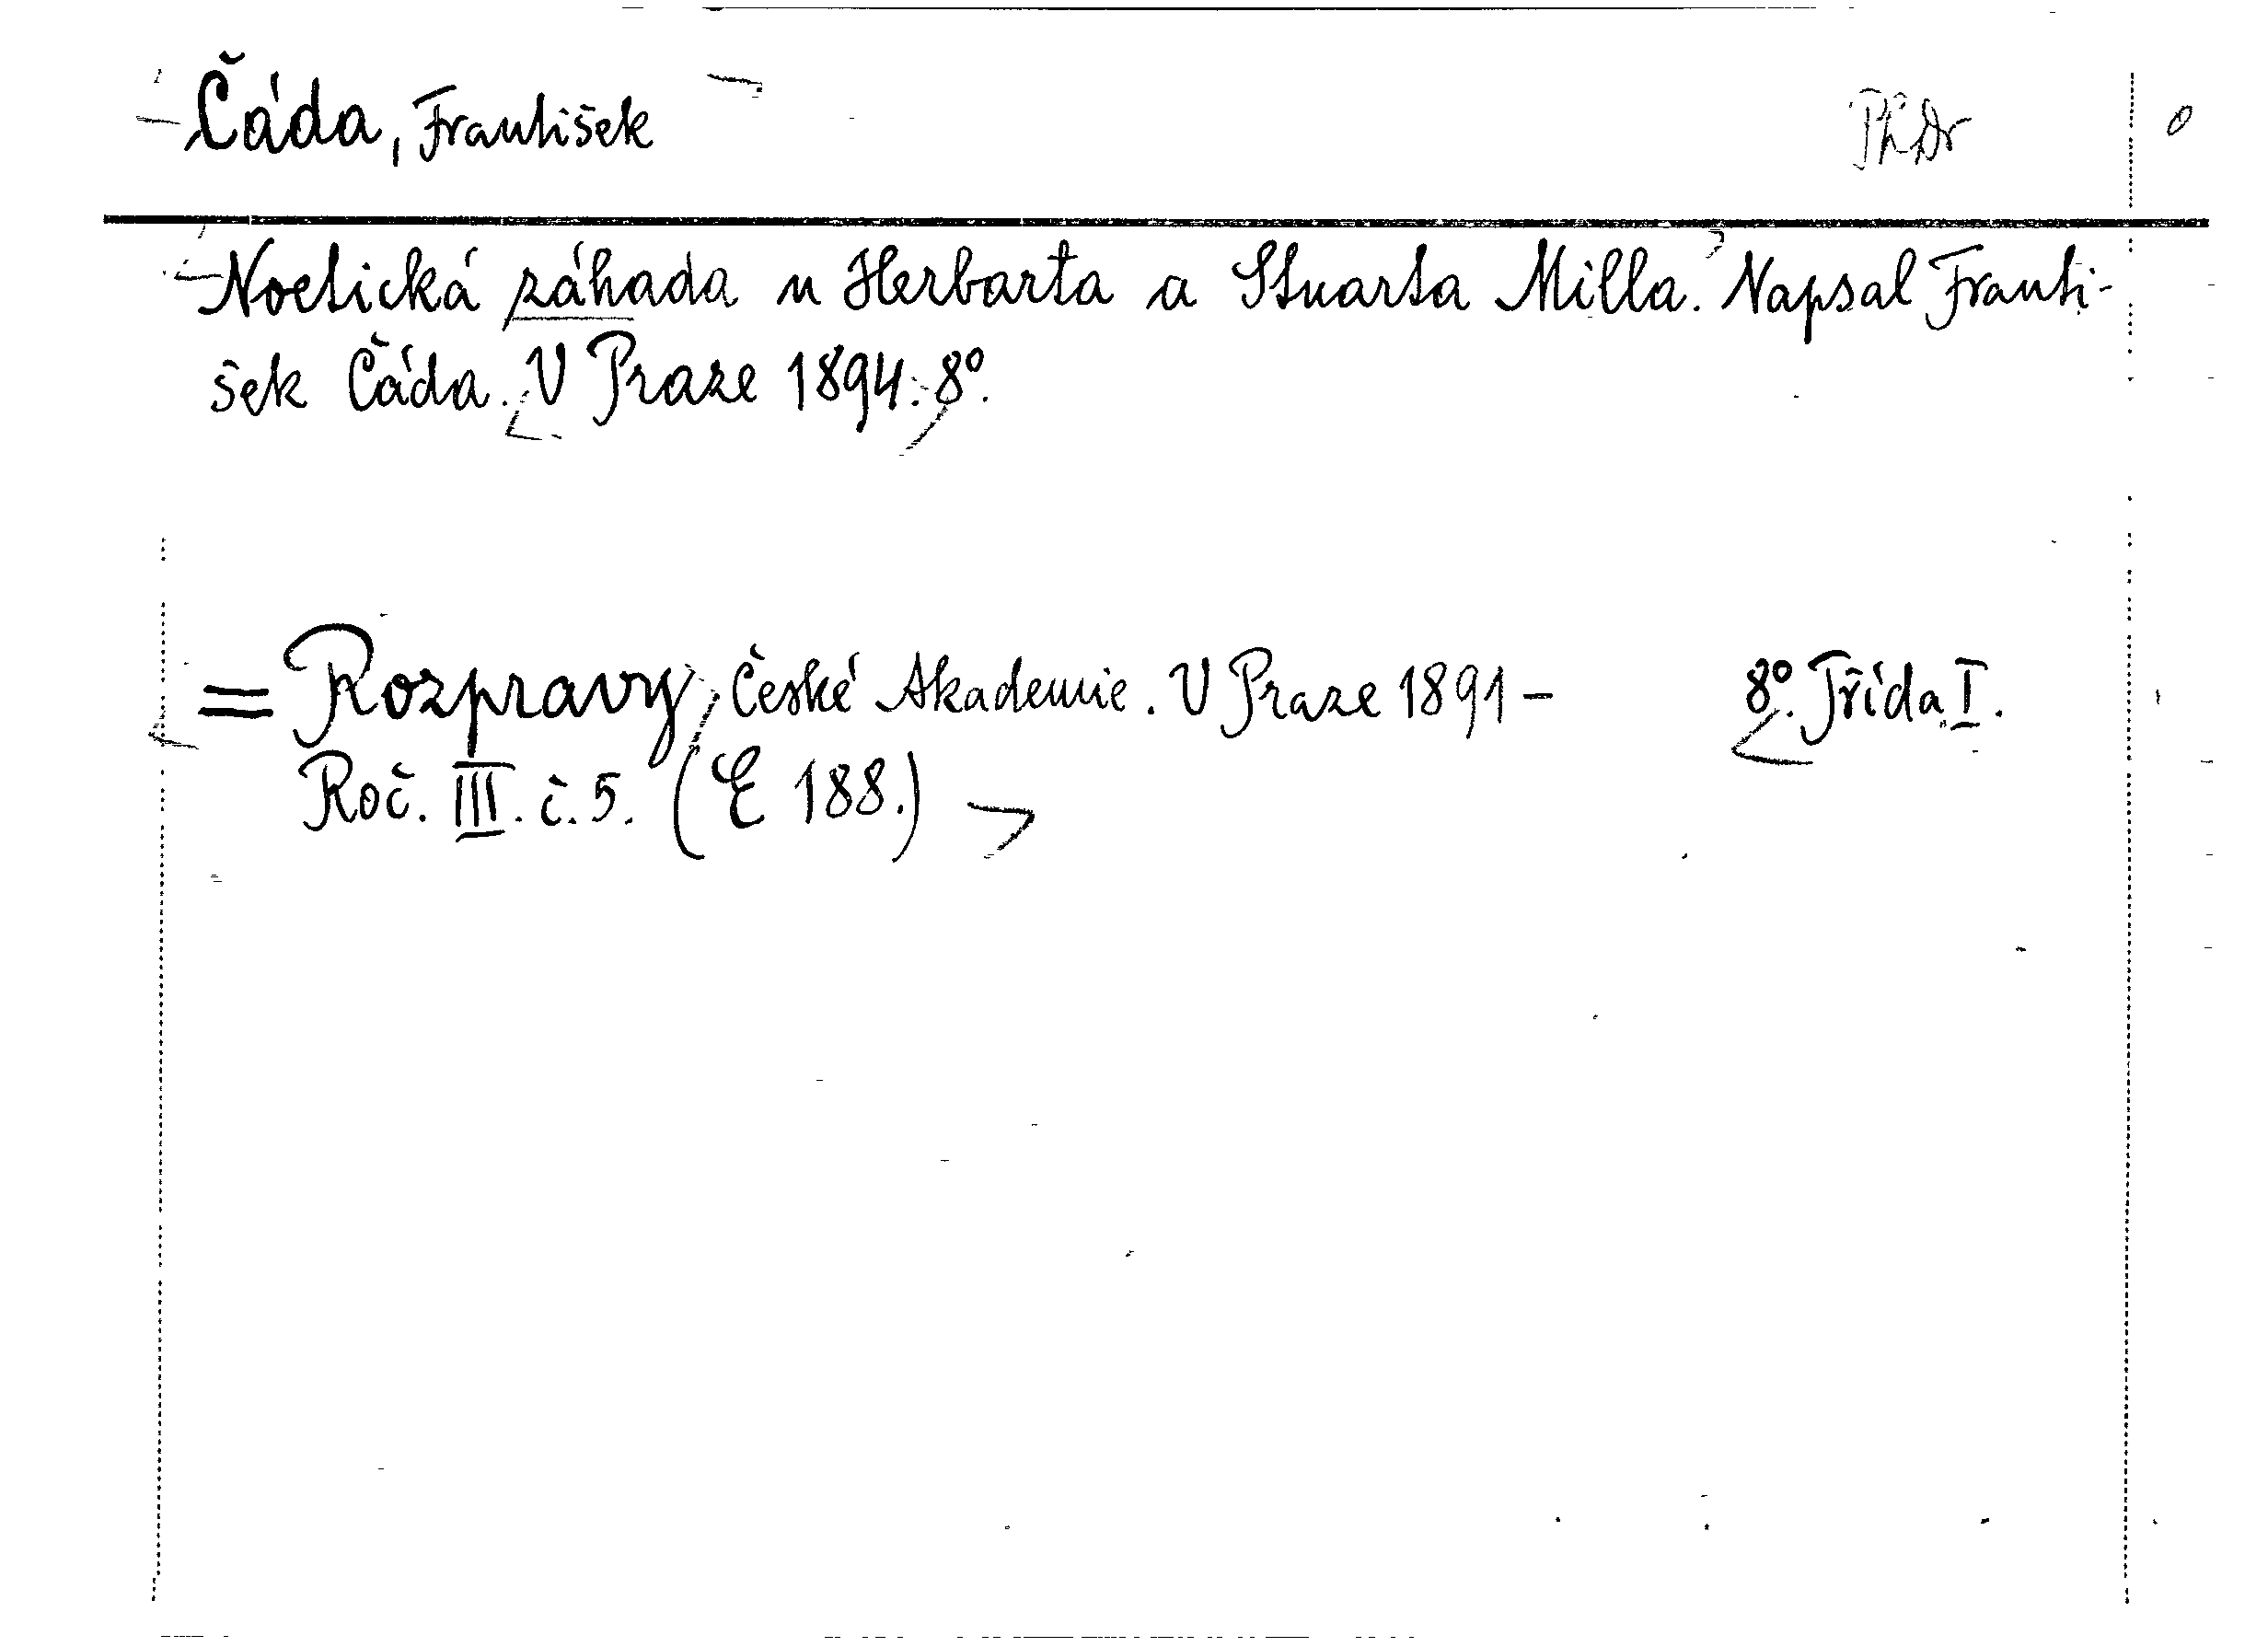 Čáda, František PhDr
Noetická záhada u Herbarta a Stuarta Milla. Napsal Franti-
šek Čáda. V Praze 1894. 8º.
= Rozpravy České Akademie. V Praze 1891 - 8º. Třída I.
Roč. III. č. 5. (E 188.)